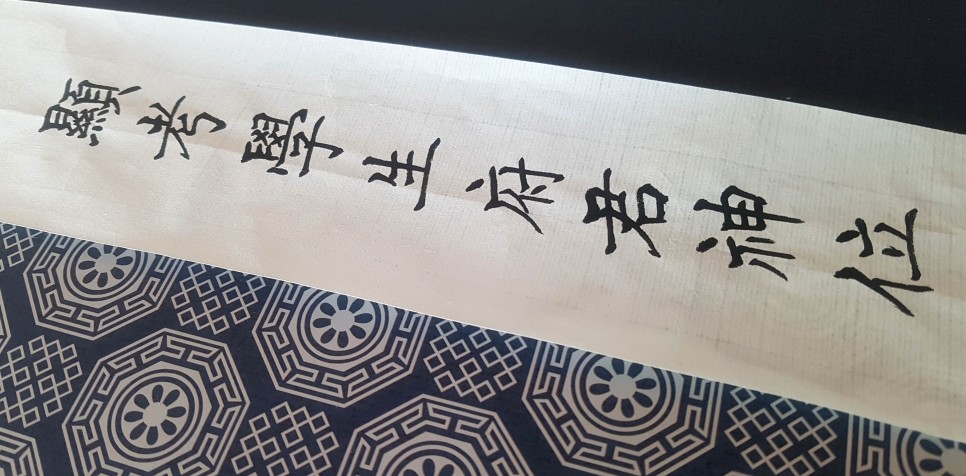 顯考學生府君神位